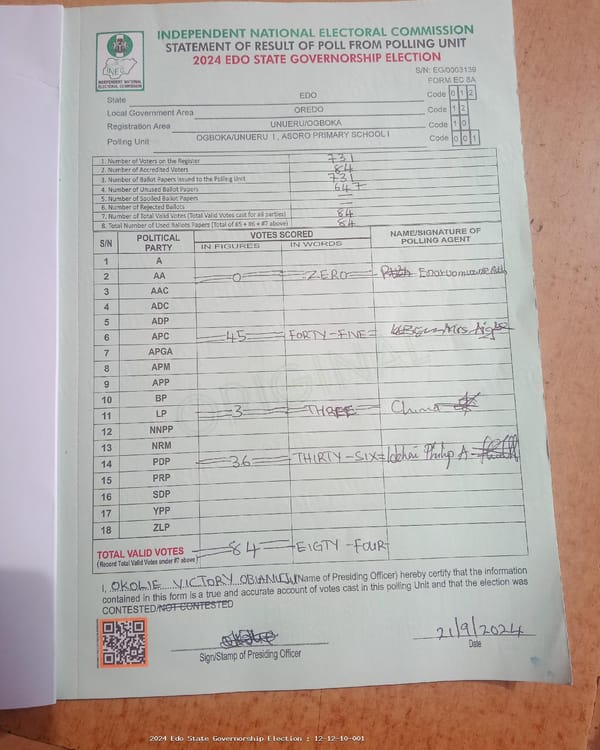 INDEPENDENT NATIONAL ELECTORAL COMMISSION
STATEMENT OF RESULT OF POLL FROM POLLING UNIT
2024 EDO STATE GOVERNORSHIP ELECTION
INEC
INDEPENDENT NATIONAL ELECTORAL COMMISSION
S/N: EG/0003139
FORM EC 8A
State EDO Code 0 1 2
Local Government Area OREDO Code 1 2
Registration Area UNUERU/OGBOKA Code 1 0
Polling Unit OGBOKA/UNUERU 1, ASORO PRIMARY SCHOOL I Code 0 0 1
1. Number of Voters on the Register 731
2. Number of Accredited Voters 84
3. Number of Ballot Papers Issued to the Polling Unit 731
4. Number of Unused Ballot Papers 647
5. Number of Spoiled Ballot Papers —
6. Number of Rejected Ballots —
7. Number of Total Valid Votes (Total Valid Votes cast for all parties) 84
8. Total Number of Used Ballots Papers (Total of #5 + #6 + #7 above) 84
S/N POLITICAL PARTY VOTES SCORED NAME/SIGNATURE OF POLLING AGENT
IN FIGURES IN WORDS
1 A
2 AA 0 ZERO
3 AAC
4 ADC
5 ADP
6 APC 45 FORTY-FIVE Mrs
7 APGA
8 APM
9 APP
10 BP
11 LP 3 THREE
12 NNPP
13 NRM
14 PDP 36 THIRTY-SIX Philip A
15 PRP
16 SDP
17 YPP
18 ZLP
ORIGINAL
TOTAL VALID VOTES 84 EIGTY-FOUR
(Record Total Valid Votes under #7 above)
I, OKOLIE VICTORY OBIANUJU (Name of Presiding Officer) hereby certify that the information
contained in this form is a true and accurate account of votes cast in this polling Unit and that the election was
CONTESTED/NOT CONTESTED
21/9/2024
Sign/Stamp of Presiding Officer Date
2024 Edo State Governorship Election : 12-12-10-001